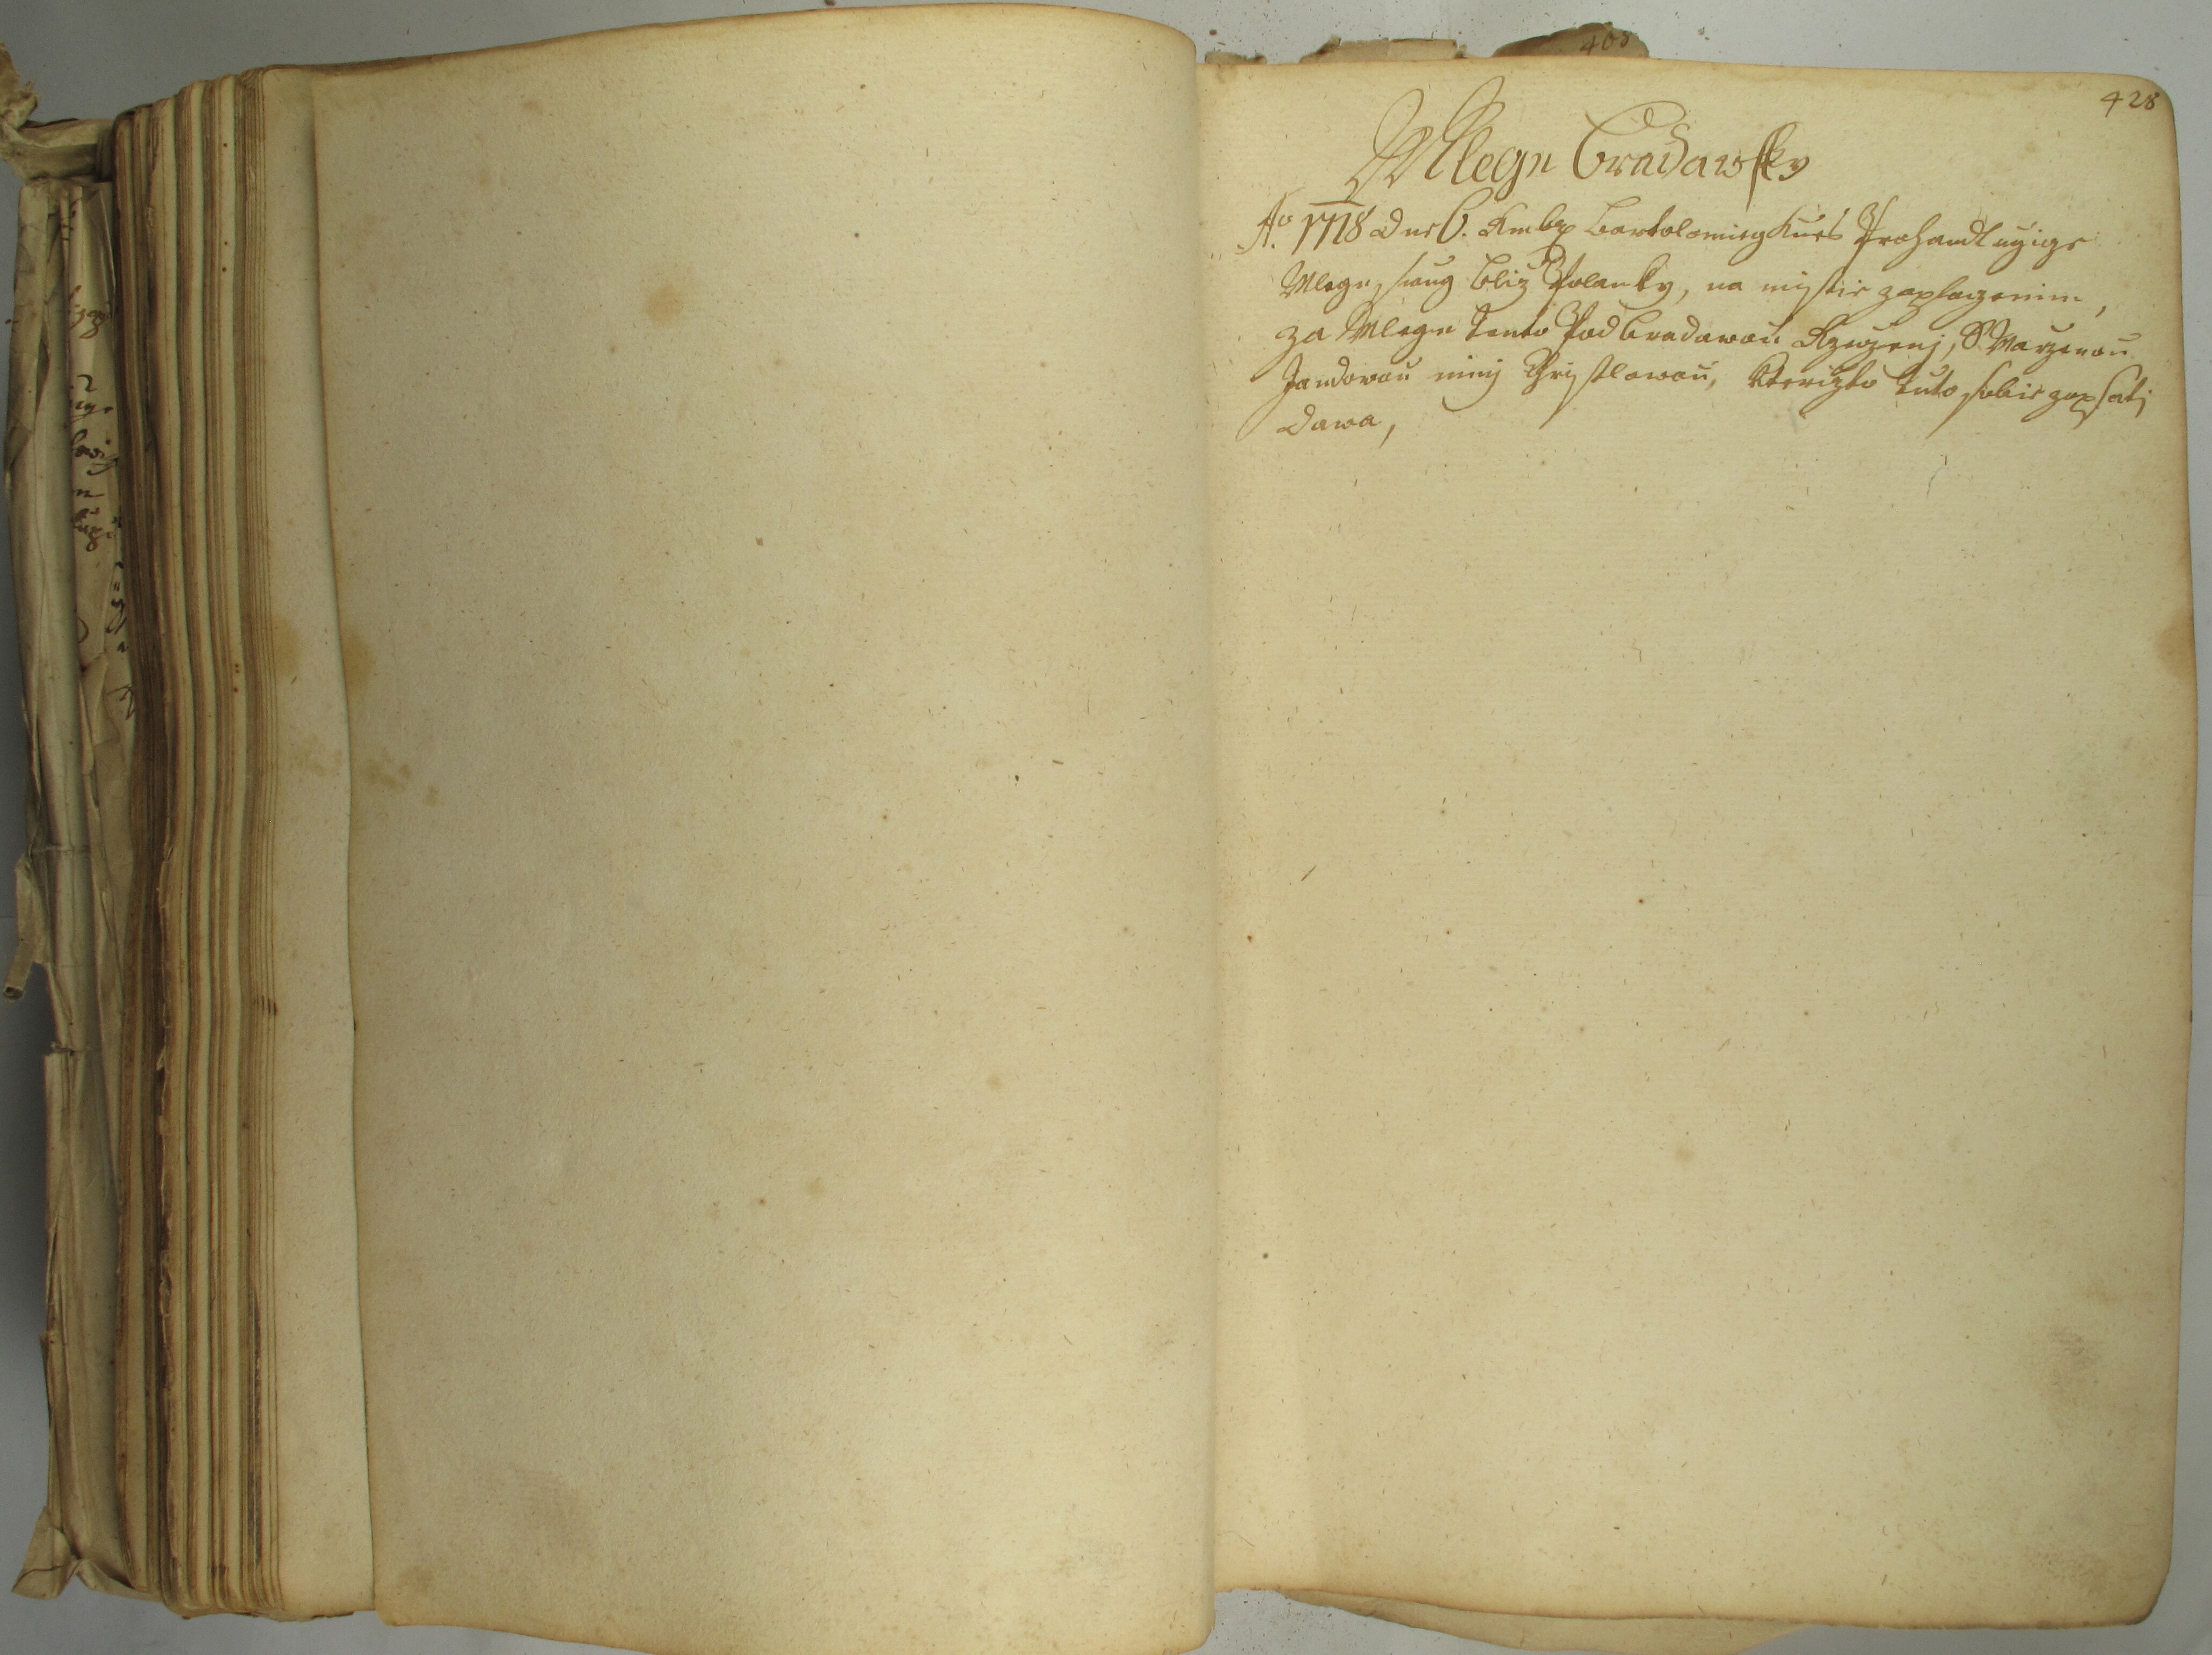 405
428
Mlegn Bradawsky
Aō. 1718 dne 6. Xmbr Bartolomieg Kues Prohandlugige
Mlegn swug bliz Polanky, na mistie zaplazenim,
za Mlegn tento Pod Bradawau Rzeczeni, S. Marzenau
Jandowau niny Christlowau, kterizto tuto sobie zapsati
dawa,